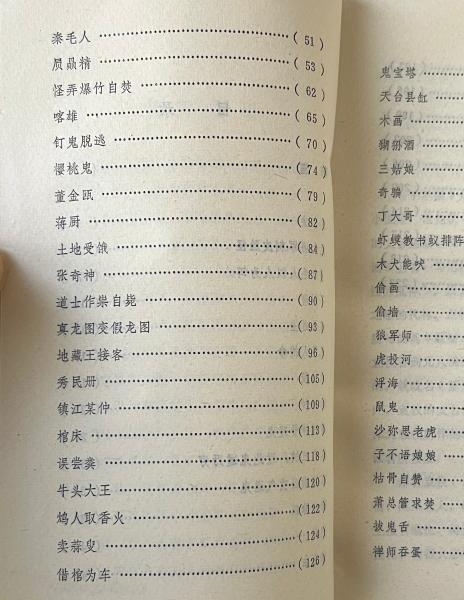 漆毛人 ……………………( 51 )
赑屃精 ……………………( 53 )
怪弄爆竹自焚 ……………………( 62 )
喀雄 ……………………( 65 )
钉鬼脱逃 ……………………( 70 )
樱桃鬼 ……………………( 74 )
董金瓯 ……………………( 79 )
蒋厨 ……………………( 82 )
土地受饿 ……………………( 84 )
张奇神 ……………………( 87 )
道士作祟自毙 ……………………( 90 )
真龙图变假龙图 ……………………( 93 )
地藏王接客 ……………………( 96 )
秀民册 ……………………(105)
镇江某仲 ……………………(109)
棺床 ……………………(113)
误尝粪 ……………………(118)
牛头大王 ……………………(120)
鸩人取香火 ……………………(122)
卖蒜叟 ……………………(124)
借棺为车 ……………………(126)
鬼宝塔 ……
天台县缸 ……
木画 ……
猢狲酒 ……
三姑娘 ……
奇骗 ……
丁大哥 ……
虾蟆教书蚁排阵
木犬能吠 ……
偷画 ……
偷墙 ……
狼军师 ……
虎投河 ……
浮海 ……
鼠鬼 ……
沙弥思老虎 ……
子不语娘娘 ……
枯骨自赞 ……
萧总管求焚 ……
拔鬼舌 ……
禅师吞蛋 ……